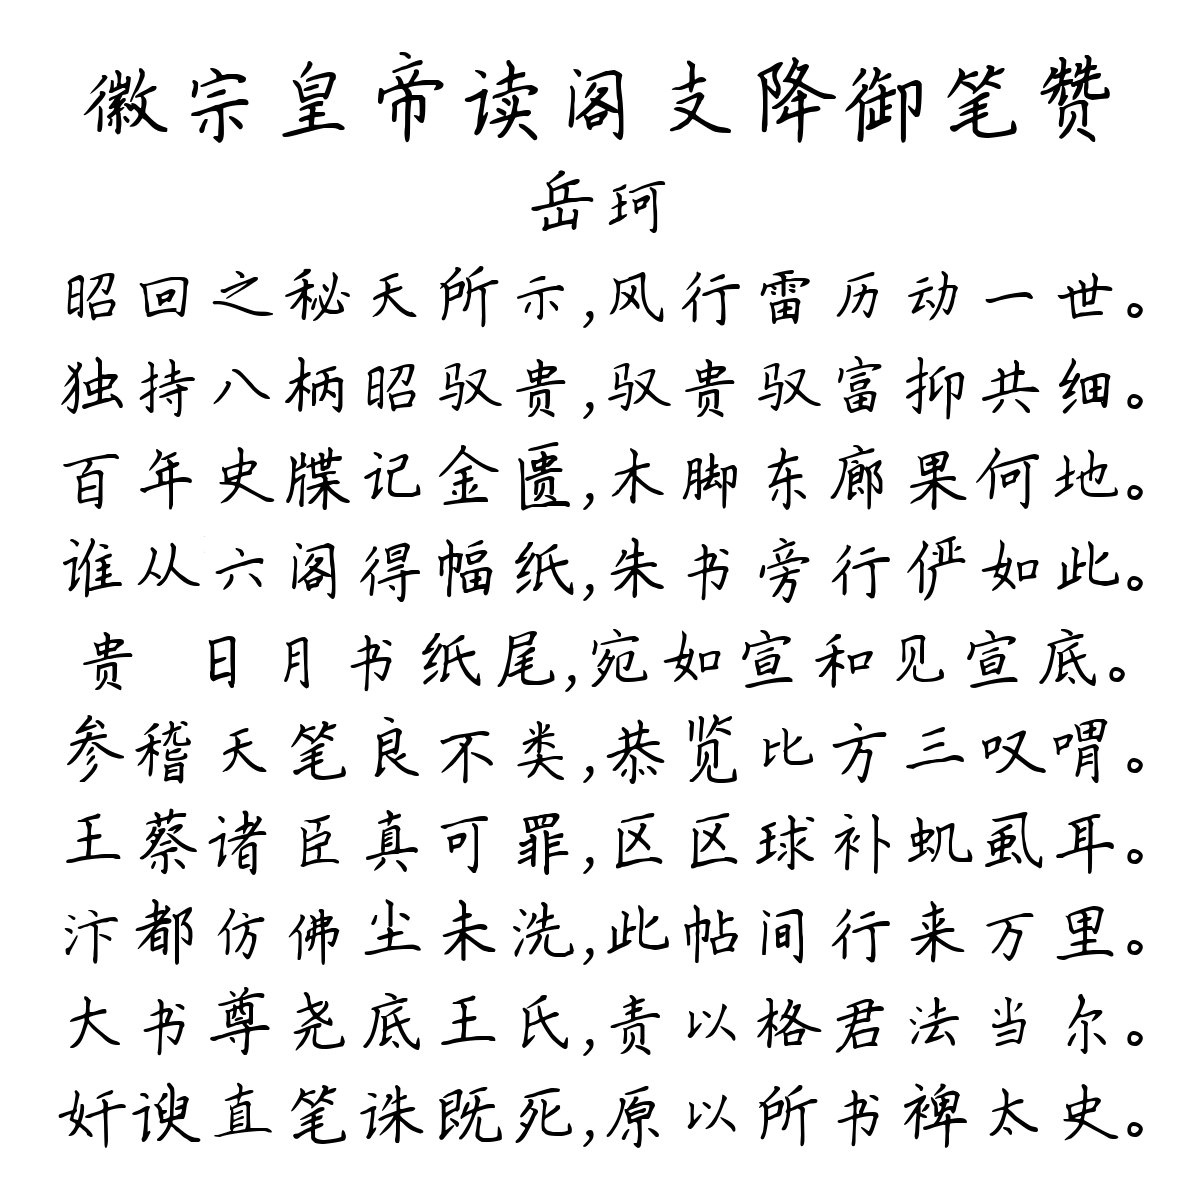 徽宗皇帝读阁支降御笔赞
岳珂
昭回之秘天所示,风行雷历动一世。
独持八柄昭驭贵,驭贵驭富抑共细。
百年史牒记金匮,木脚东廊果何地。
谁从六阁得幅纸,朱书旁行俨如此。
贵 日月书纸尾,宛如宣和见宣底。
参稽天笔良不类,恭览比方三叹喟。
王蔡诸臣真可罪,区区球补虮虱耳。
汴都仿佛尘未洗,此帖间行来万里。
大书尊尧底王氏,责以格君法当尔。
奸谀直笔诛既死,原以所书裨太史。